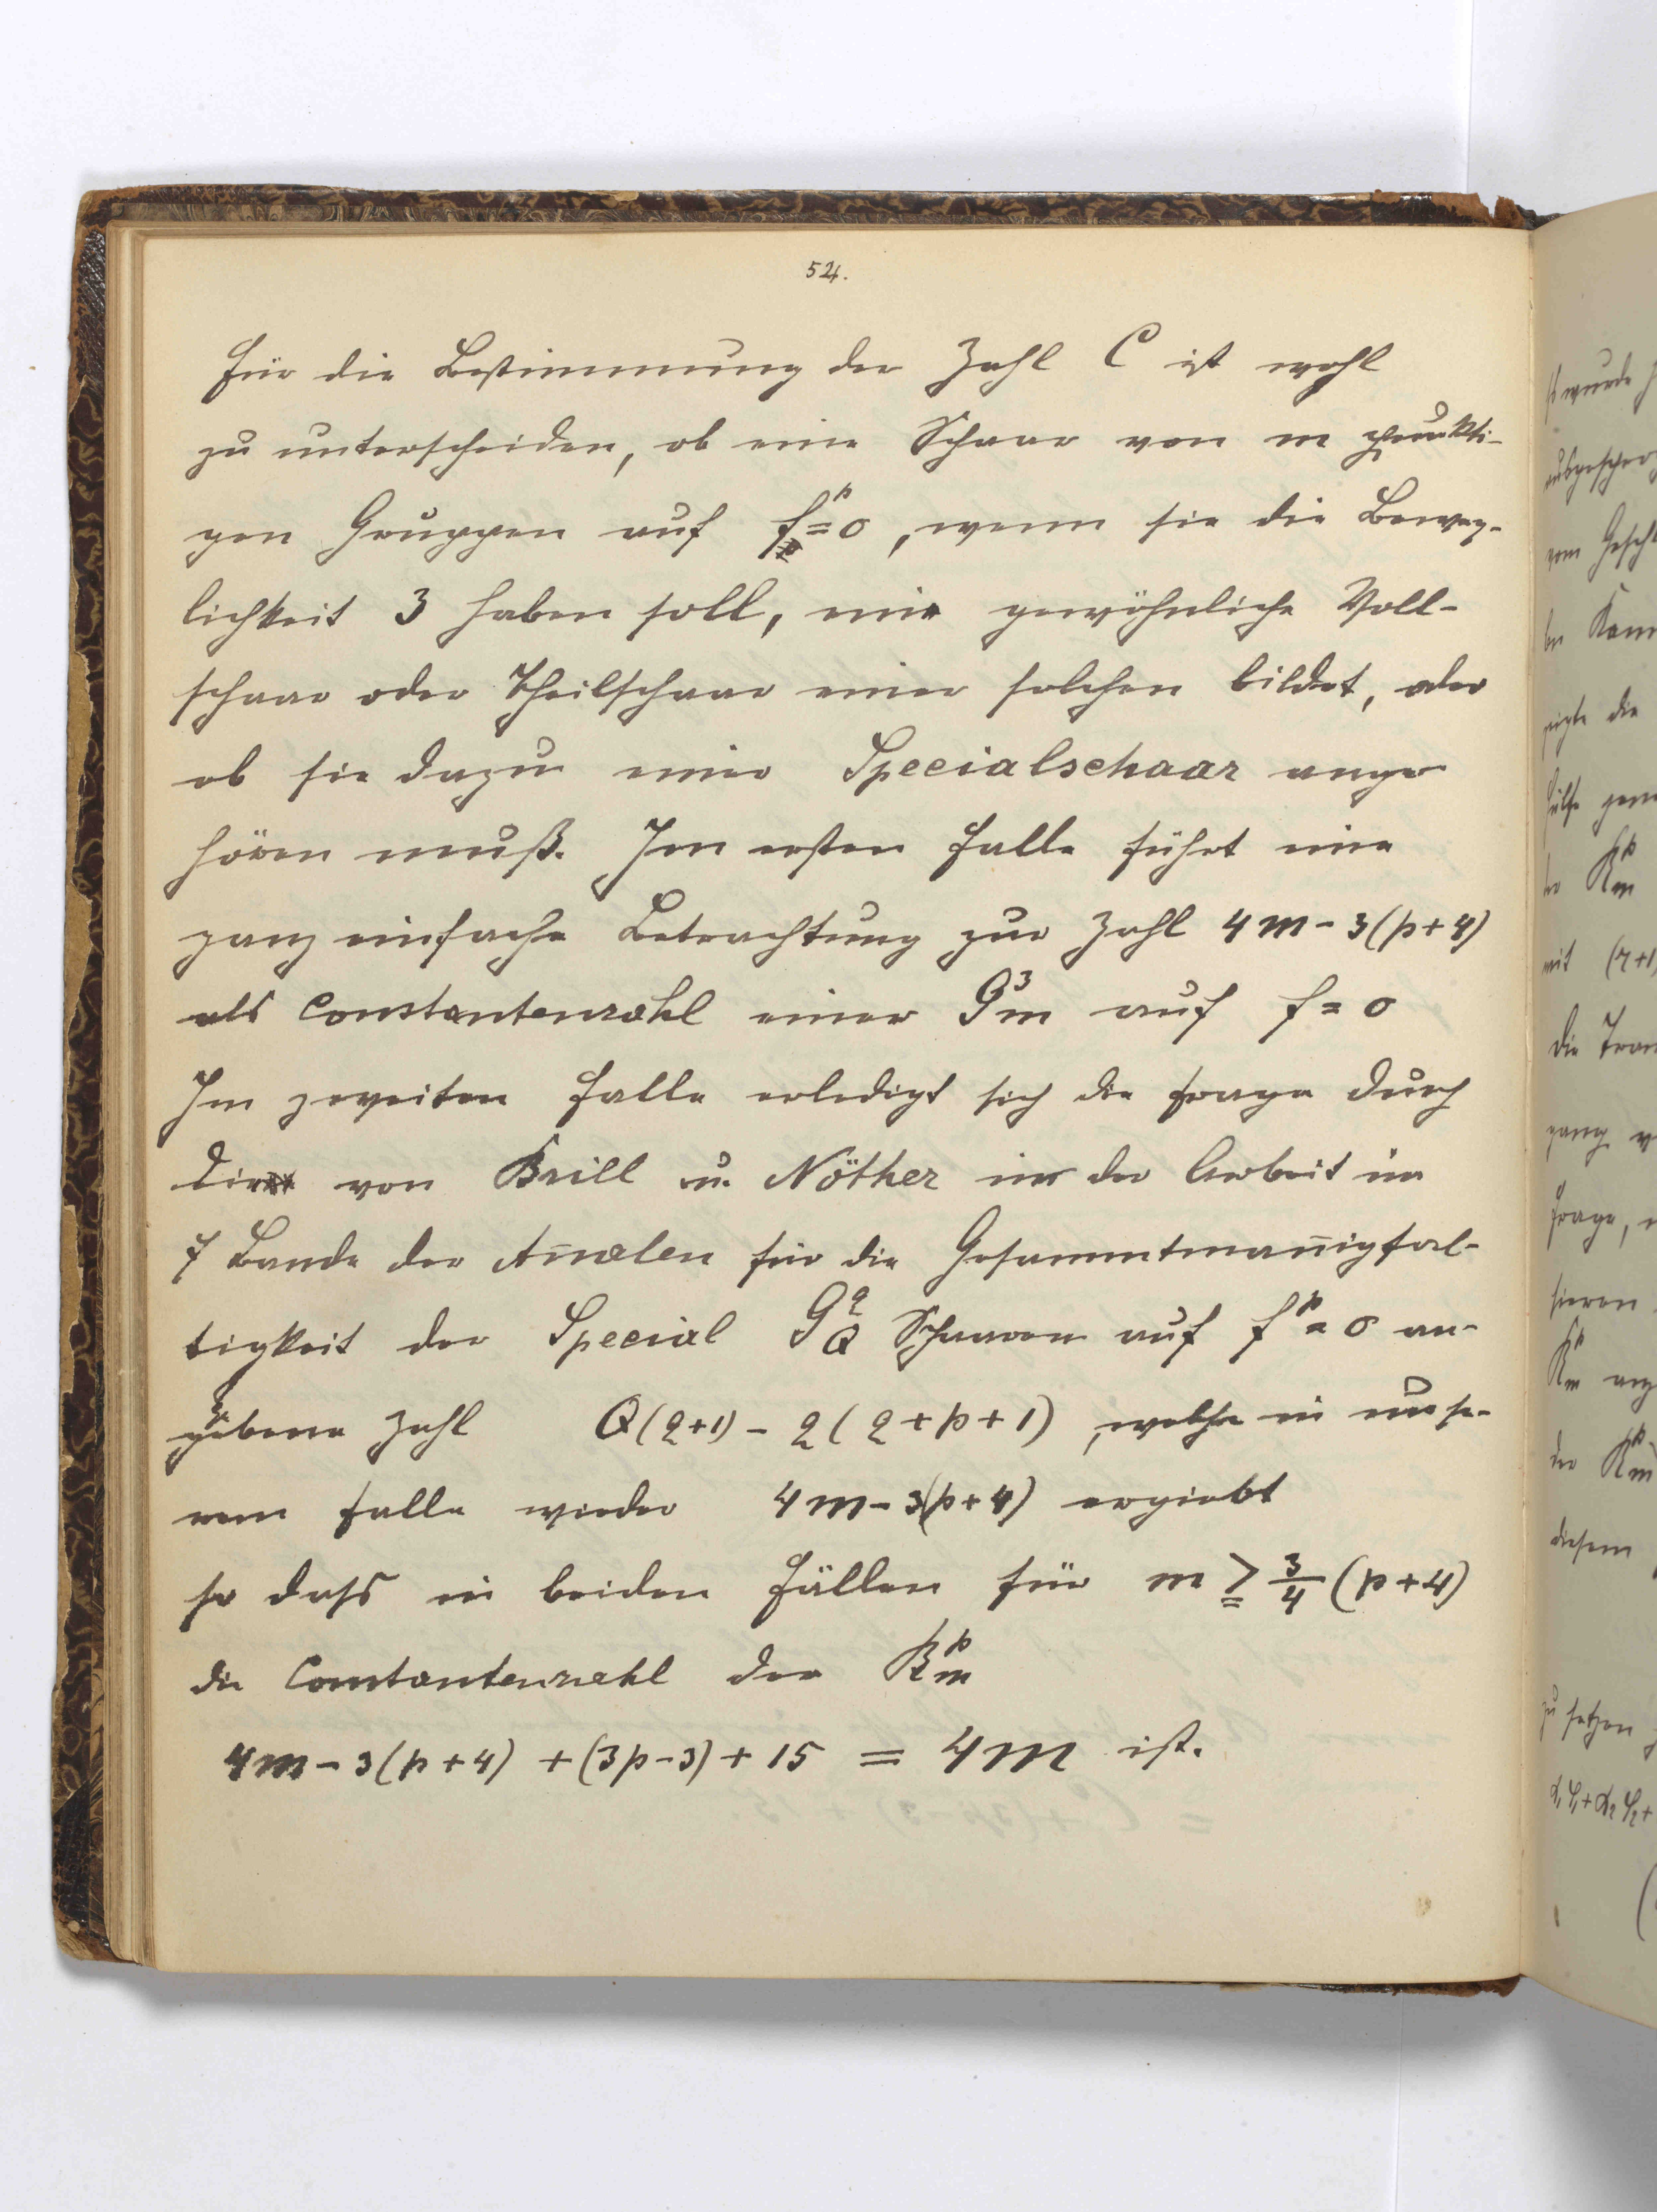 54.
Für die Bestimmung der Zahl C ist wohl
zu unterscheiden, ob eine Schaar von m punkti-
gen Gruppen auf f^p=0, wenn sie die Beweg-
lichkeit 3 haben soll, eine gewöhnliche Voll-
schaar oder Theilschaar einer solchen bildet, oder
ob sie dazu einer Specialschaar ange
hören muß. Im ersten Falle führt eine
ganz einfache Betrachtung zur Zahl 4m-3(p+4)
als Constantenzahl einer G^3_m auf f=0
Im zweiten Falle erledigt sich die Frage durch
die von Brill u. Nöther in der Arbeit im
7 Bande der An̄alen für die Gesammtman̄igfal-
tigkeit der Special G^q_Q Schaaren auf f^p=0 an-
gegebene Zahl Q(q+1)-q(q+p+1), welche in unse-
rem Falle wieder 4m-3(p+4) ergiebt
so dass in beiden Fällen für m ≧ 3/4 (p+4)
die Constantenzahl der R^p_m
4m-3(p+4)+(3p-3)+15 = 4m ist.
so wurde
vom Geschl
der R^p_m
mit (r+1)
Frage,
R^p_m
der R^p_m
diesem
zu setzen
α₁φ₁+α₂φ₂+